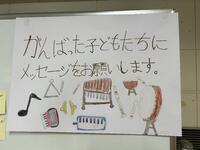 がんばった子どもたちに
メッセージをお願いします。